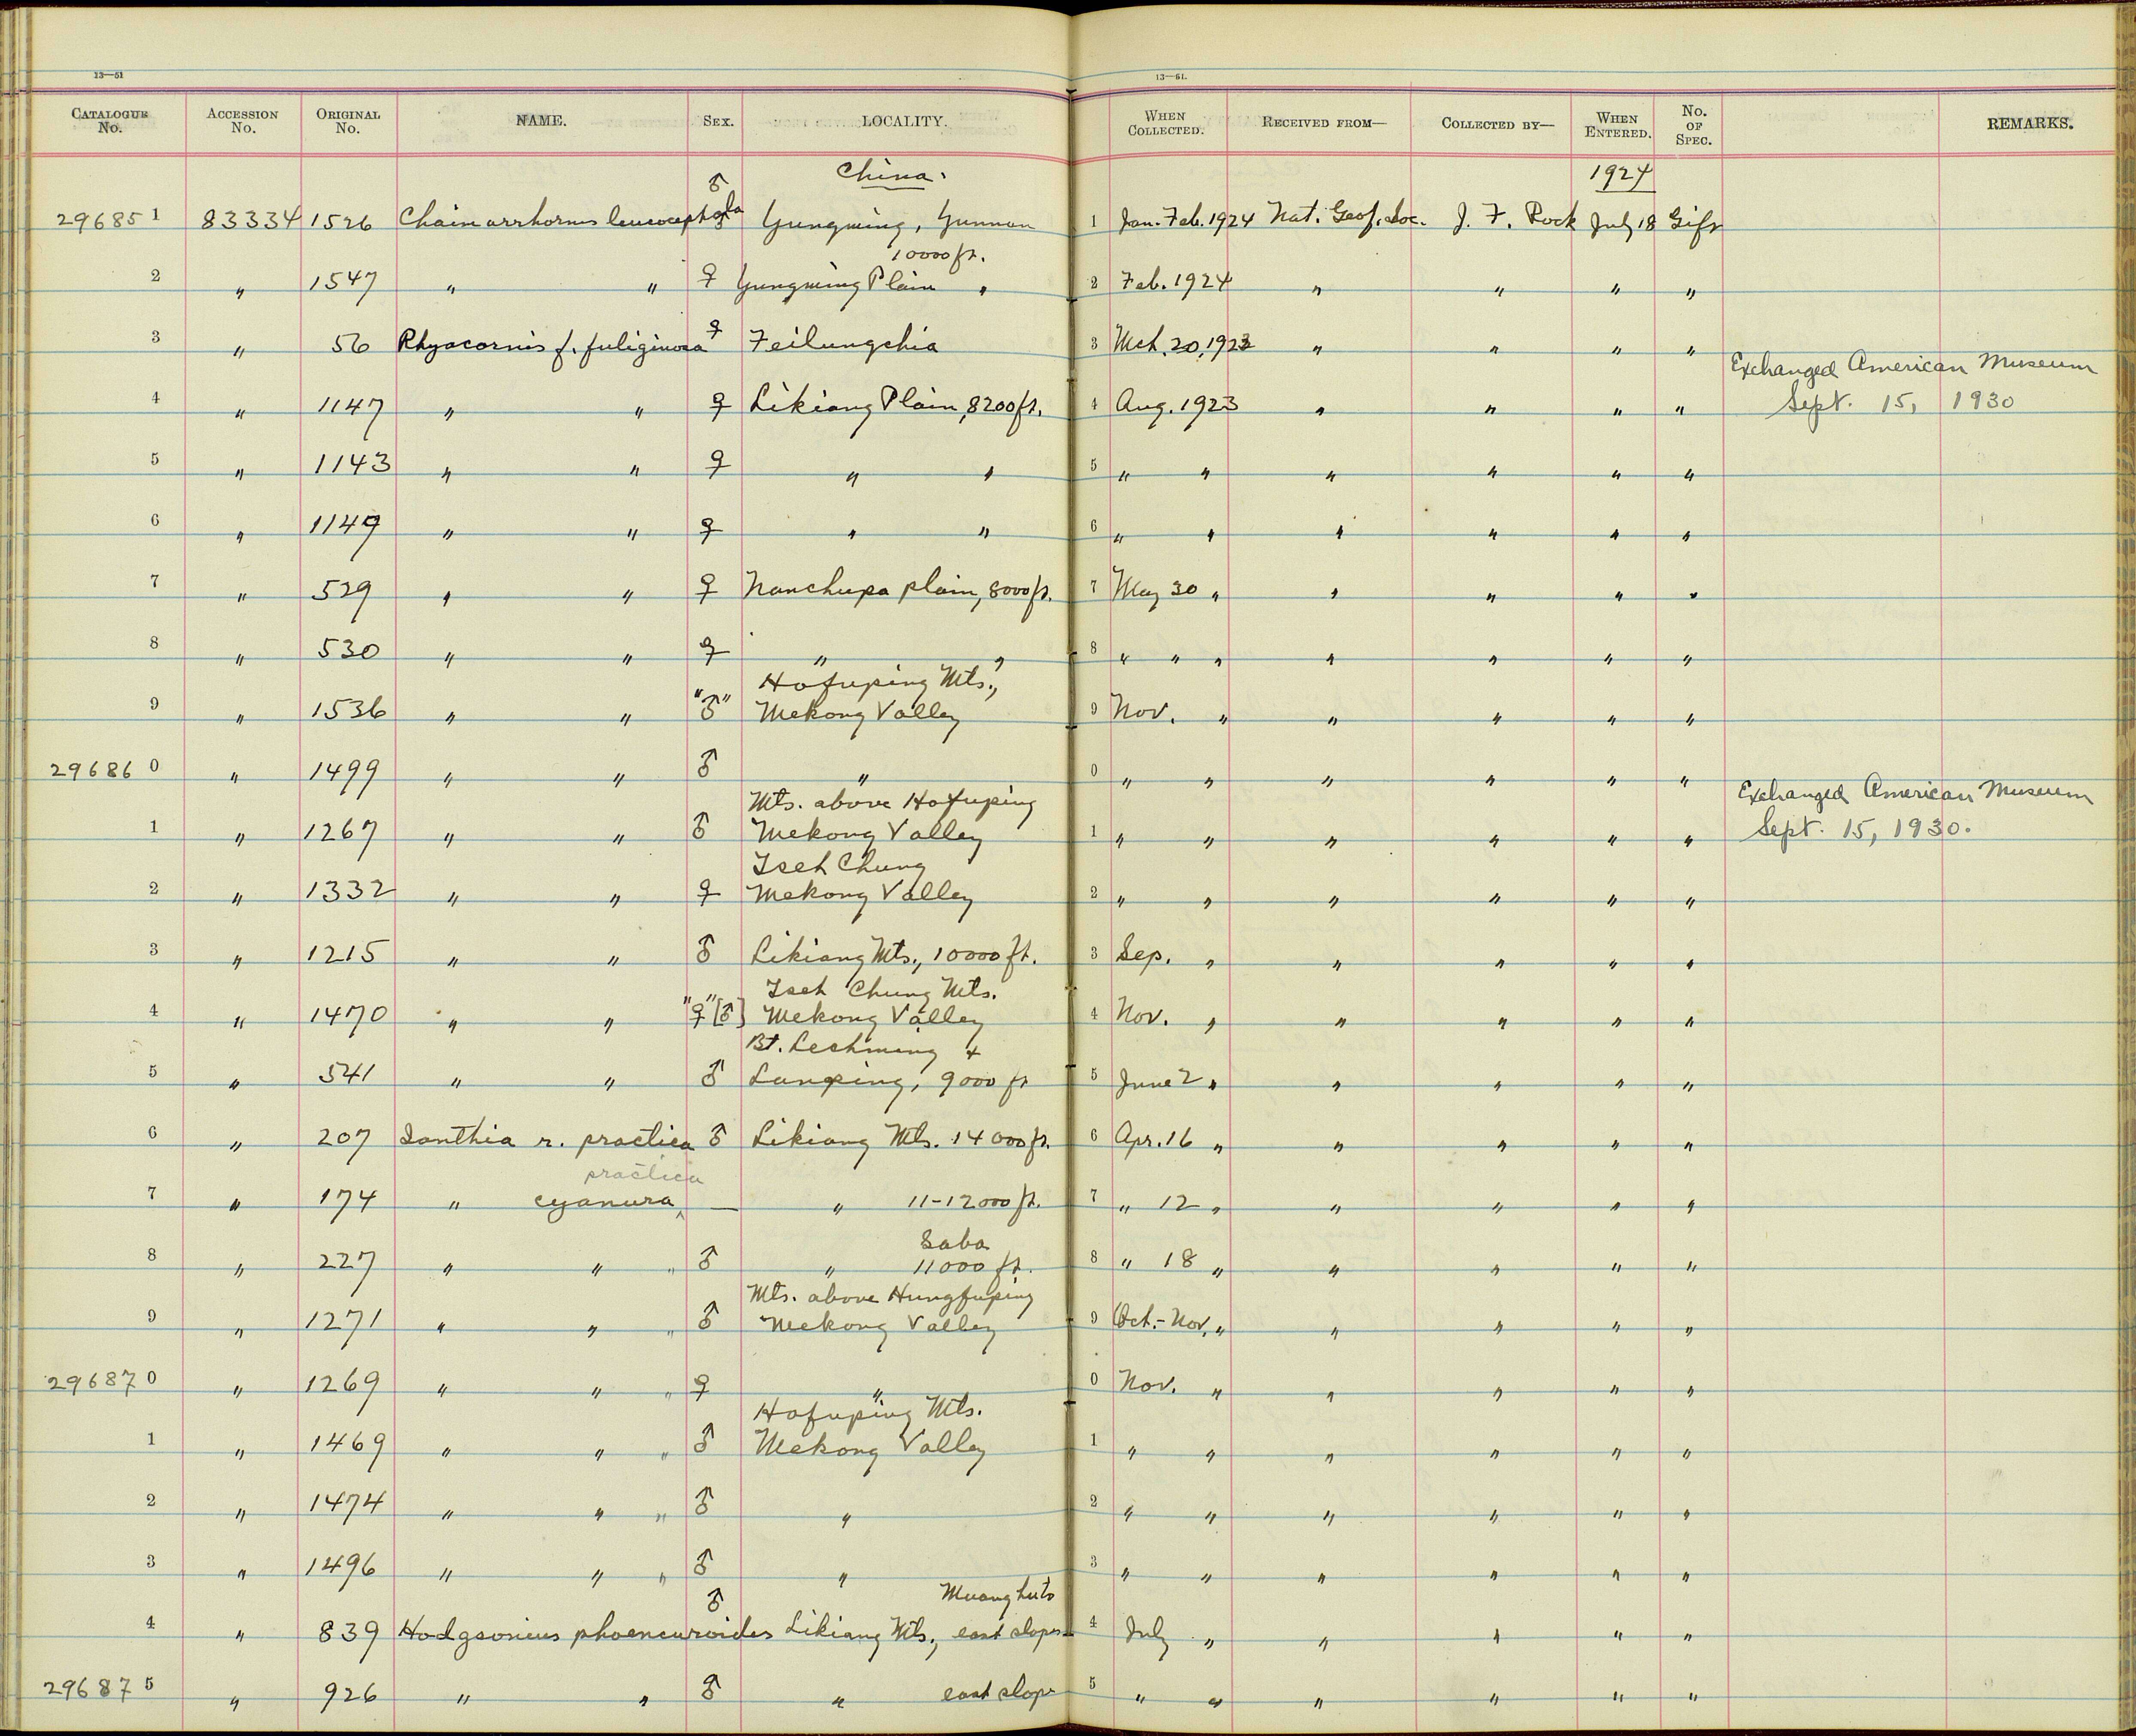 13—51
13—51.
CATALOGUE No. ACCESSION No. ORIGINAL No. NAME. SEX. LOCALITY. WHEN COLLECTED. RECEIVED FROM— COLLECTED BY— WHEN ENTERED. No. OF SPEC. REMARKS.
China. 1924
29685 1 83334 1526 Chaimarrhornis leucocephala ♂ Yungning, Yunnan 1 Jan.-Feb. 1924 Nat. Geog. Soc. J. F. Rock July 18 Gift
10000 ft.
2 " 1547 " " ♀ Yungning Plain " 2 Feb. 1924 " " " "
3 " 56 Rhyacornis f. fuliginosa ♀ Feilungchia 3 Mch. 20, 1923 " " " "
Exchanged American Museum
4 " 1147 " " ♀ Likiang Plain, 8200 ft. 4 Aug. 1923 " " " " Sept. 15, 1930
5 " 1143 " " ♀ " " 5 " " " " " "
6 " 1149 " " ♀ " " 6 " " " " " "
7 " 529 " " ♀ Nanchupa plain, 8000 ft. 7 May 30 " " " " "
8 " 530 " " ♀ " " 8 " " " " " " "
Hofuping Mts.,
9 " 1536 " " "♂" Mekong Valley 9 Nov. " " " " "
29686 0 " 1499 " " ♂ " 0 " " " " " "
Mts. above Hofuping Exchanged American Museum
1 " 1267 " " ♂ Mekong Valley 1 " " " " " " Sept. 15, 1930.
Tseh Chung
2 " 1332 " " ♀ Mekong Valley 2 " " " " " "
3 " 1215 " " ♂ Likiang Mts., 10000 ft. 3 Sep. " " " " "
Tseh Chung Mts.
4 " 1470 " " "♀" [♂] Mekong Valley 4 Nov. " " " " "
Bt. Leshming &
5 " 541 " " ♂ Lanping, 9000 ft 5 June 2 " " " " "
6 " 207 Ianthia r. practica ♂ Likiang Mts. 14000 ft. 6 Apr. 16 " " " " "
practica
7 " 174 " cyanura, — " 11-12000 ft. 7 " 12 " " " " "
Saba
8 " 227 " " " ♂ " 11000 ft. 8 " 18 " " " " "
Mts. above Hungfuping
9 " 1271 " " " ♂ Mekong Valley 9 Oct.-Nov. " " " " "
29687 0 " 1269 " " " ♀ " 0 Nov. " " " " "
Hofuping Mts.
1 " 1469 " " " ♂ Mekong Valley 1 " " " " " "
2 " 1474 " " " ♂ " 2 " " " " " "
3 " 1496 " " " ♂ " 3 " " " " " "
4 " 839 Hodgsonius phoenicuroides ♂ Likiang Mts., east slopes 4 July " " " " "
29687 5 " 926 " " " east slope 5 " " " " " "